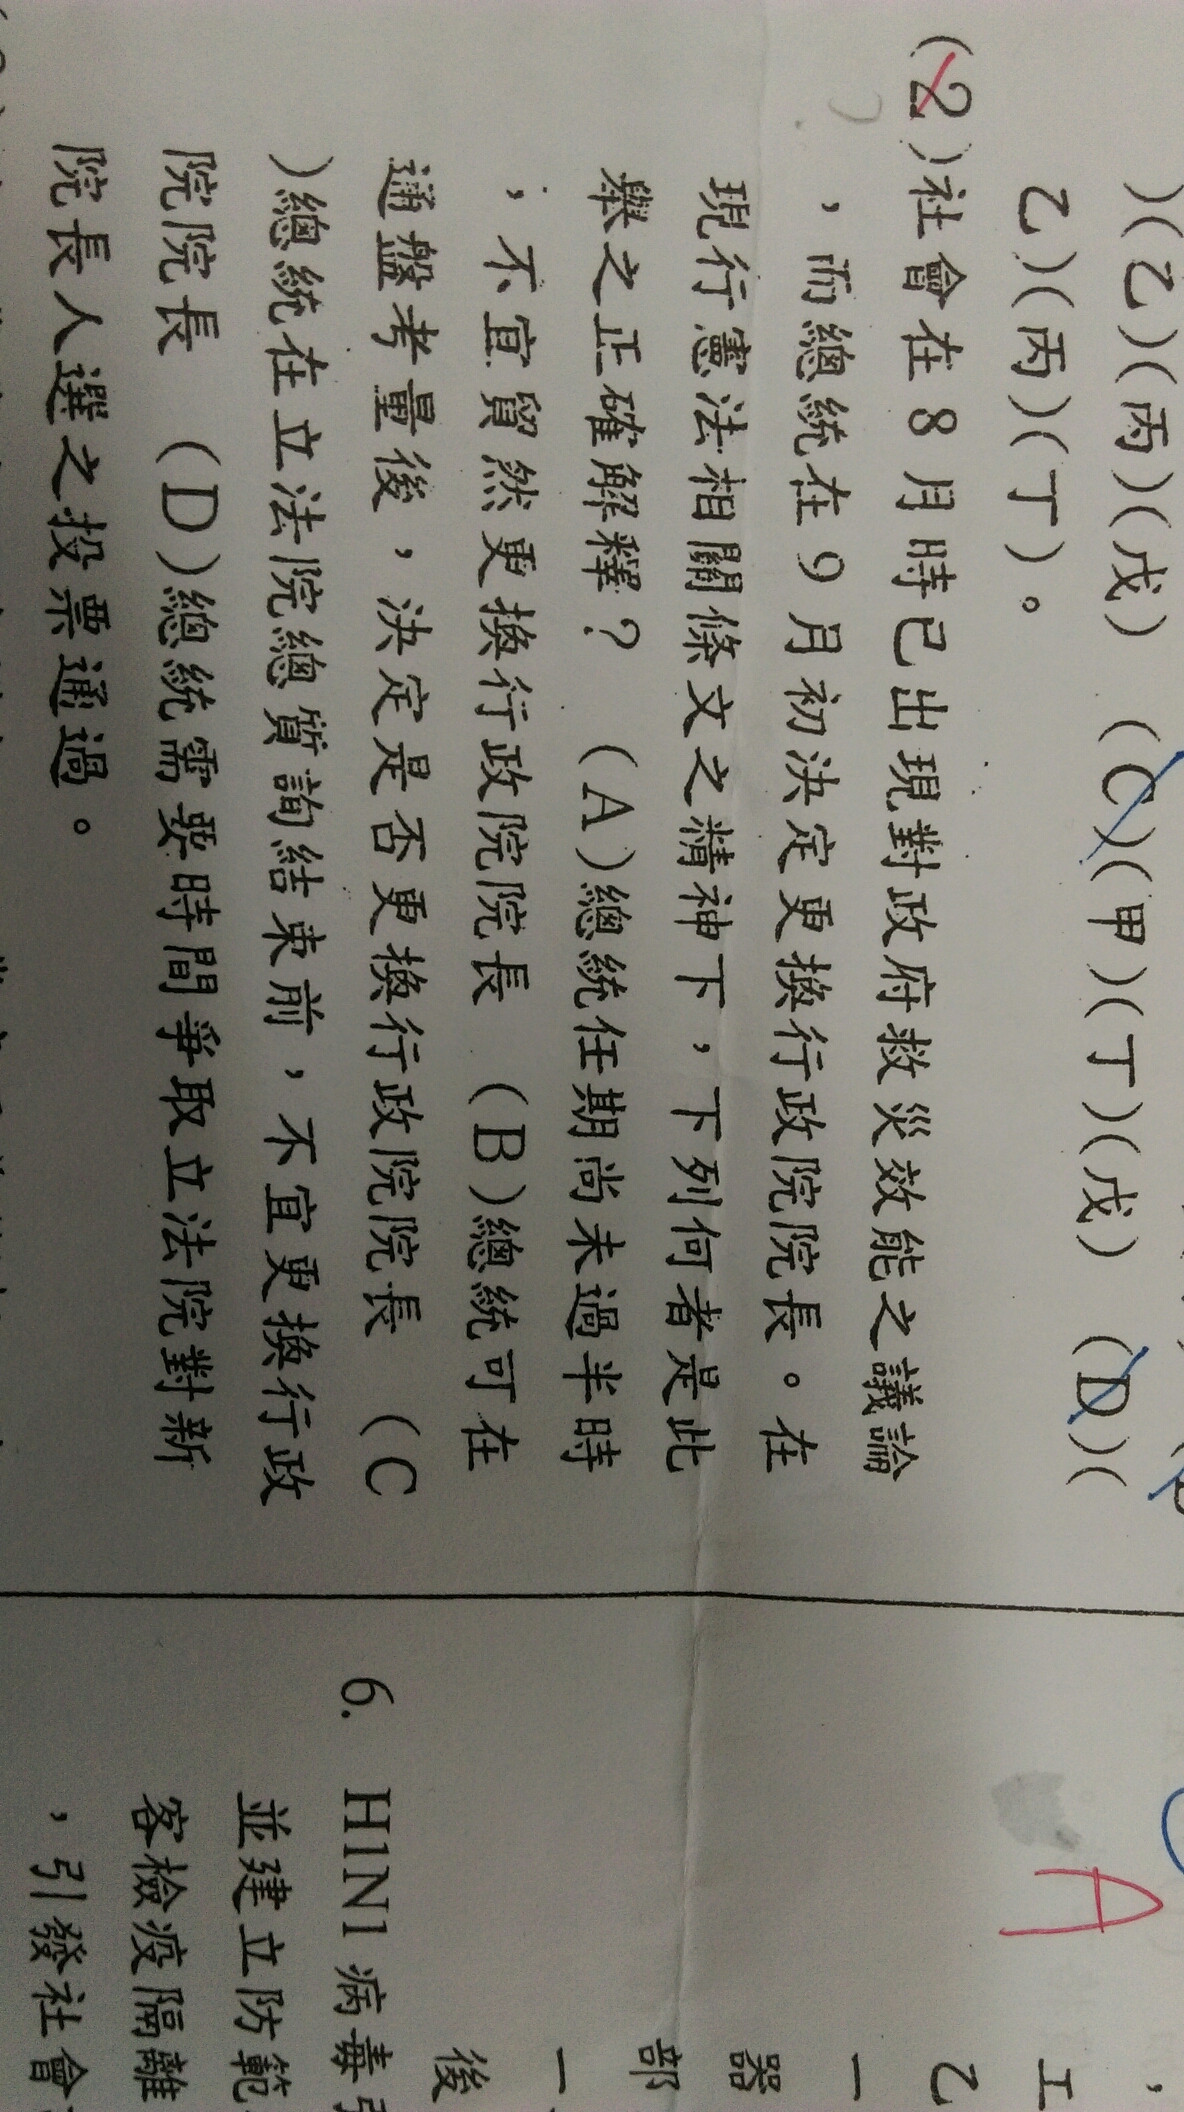 )(乙)(丙)(戊)　(C)(甲)(丁)(戊)　(D)(
乙)(丙)(丁)。
(2)社會在8月時已出現對政府救災效能之議論
，而總統在9月初決定更換行政院院長。在
現行憲法相關條文之精神下，下列何者是此
舉之正確解釋？　(A)總統任期尚未過半時
，不宜貿然更換行政院院長　(B)總統可在
通盤考量後，決定是否更換行政院院長　(C
)總統在立法院總質詢結束前，不宜更換行政
院院長　(D)總統需要時間爭取立法院對新
院長人選之投票通過。
A
工
乙
一
器
部
一
後
6. H1N1病毒引
並建立防範
客檢疫隔離
，引發社會